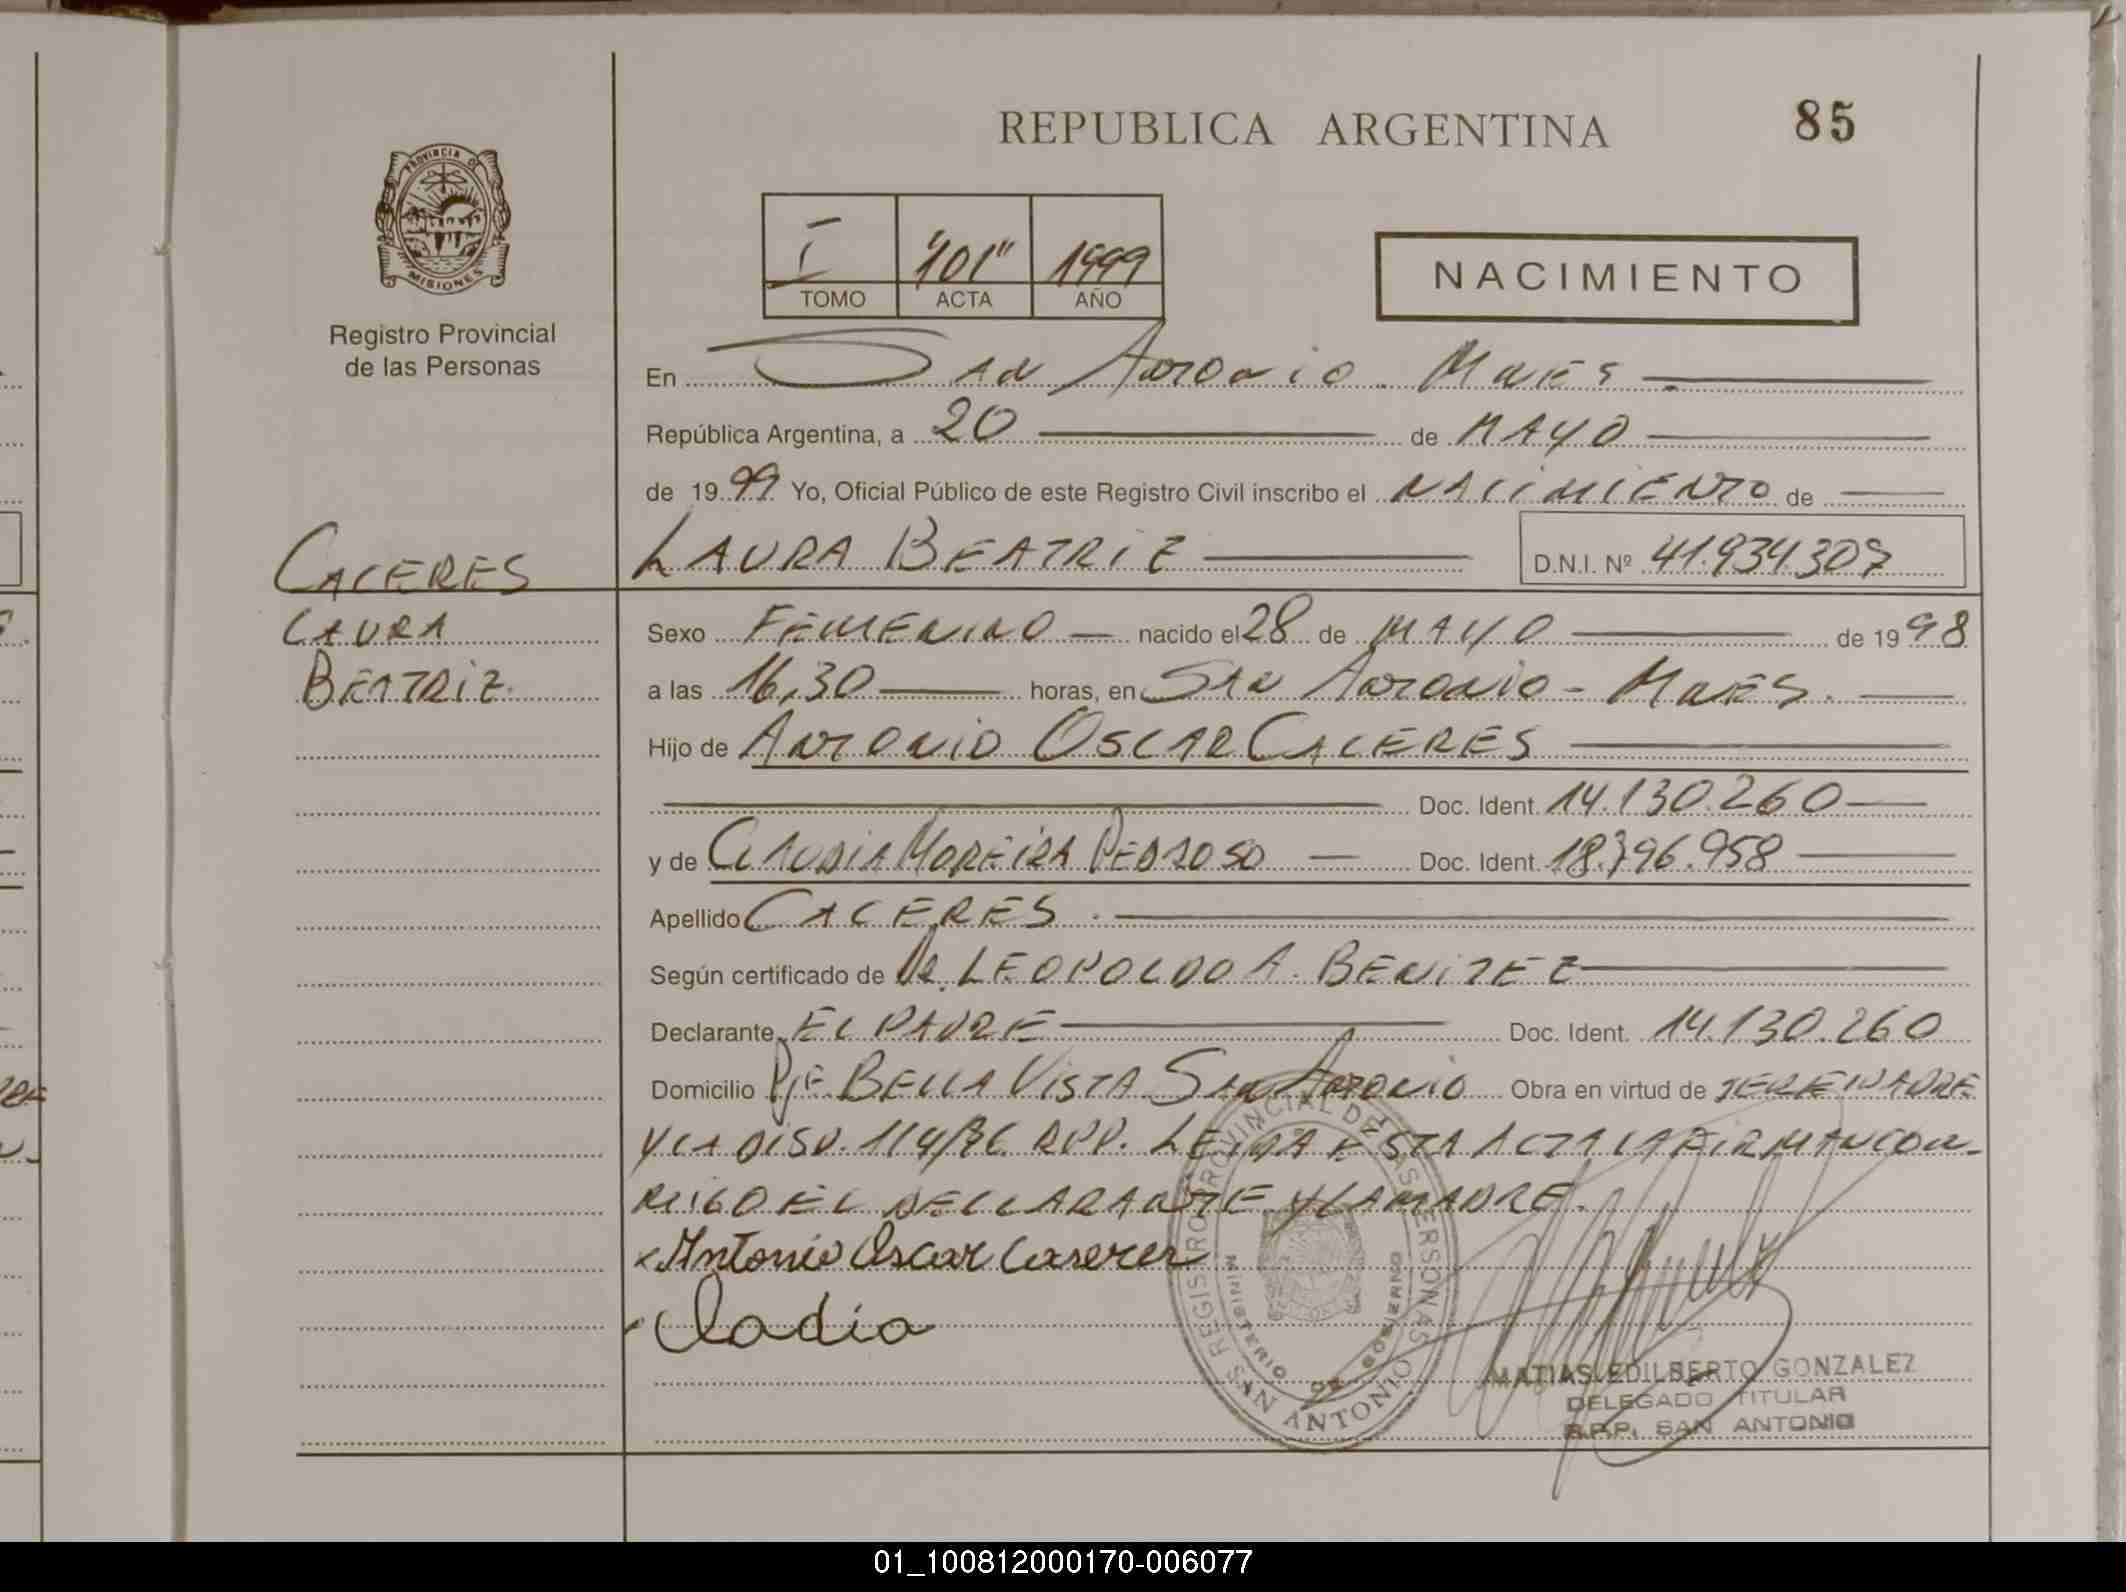 REPUBLICA ARGENTINA
85
PROVINCIA D MISIONES
Registro Provincial
de las Personas
I "101" 1999
TOMO ACTA AÑO
NACIMIENTO
En SAN ANTONIO. MNES
República Argentina, a 20 de MAYO
de 1999 Yo, Oficial Público de este Registro Civil inscribo el NACIMIENTO de
CACERES
LAURA
BEATRIZ
LAURA BEATRIZ D.N.I. Nº 41.934.307
Sexo FEMENINO nacido el 28 de MAYO de 1998
a las 16,30 horas, en SAN ANTONIO - MNES.
Hijo de ANTONIO OSCAR CACERES
Doc. Ident. 14.130.260
y de CLAUDIA MOREIRA PEDROSO Doc. Ident. 18.796.958
Apellido CACERES.
Según certificado de DR. LEOPOLDO A. BENITEZ
Declarante EL PADRE Doc. Ident. 14.130.260
Domicilio PJE. BELLA VISTA SAN ANTONIO Obra en virtud de SER EL PADRE
Y LA DISP. 114/76 RPP. LEIDA ESTA ACTA LA FIRMAN CON-
MIGO EL DECLARANTE Y LA MADRE.
x Antonio Oscar Caserez
Cladia
REGISTRO PROVINCIAL DE LAS PERSONAS
MINISTERIO DE GOBIERNO
SAN ANTONIO
MATIAS EDILBERTO GONZALEZ
DELEGADO TITULAR
R.P.P. SAN ANTONIO
01_100812000170-006077